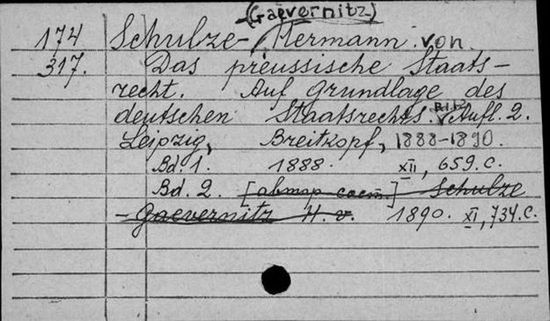 (Gaevernitz)
174 Schulze- Hermann von.
317. Das preussische Staats-
recht. Auf Grundlage des
deutschen Staatsrechts. Aufl. 2.
Leipzig, Breitkopf, 1888-1890.
Bd. 1. 1888. XII, 659. c.
Bd. 2. [автор саем.] Schulze
- Gaevernitz H. v. 1890. XI, 734. c.